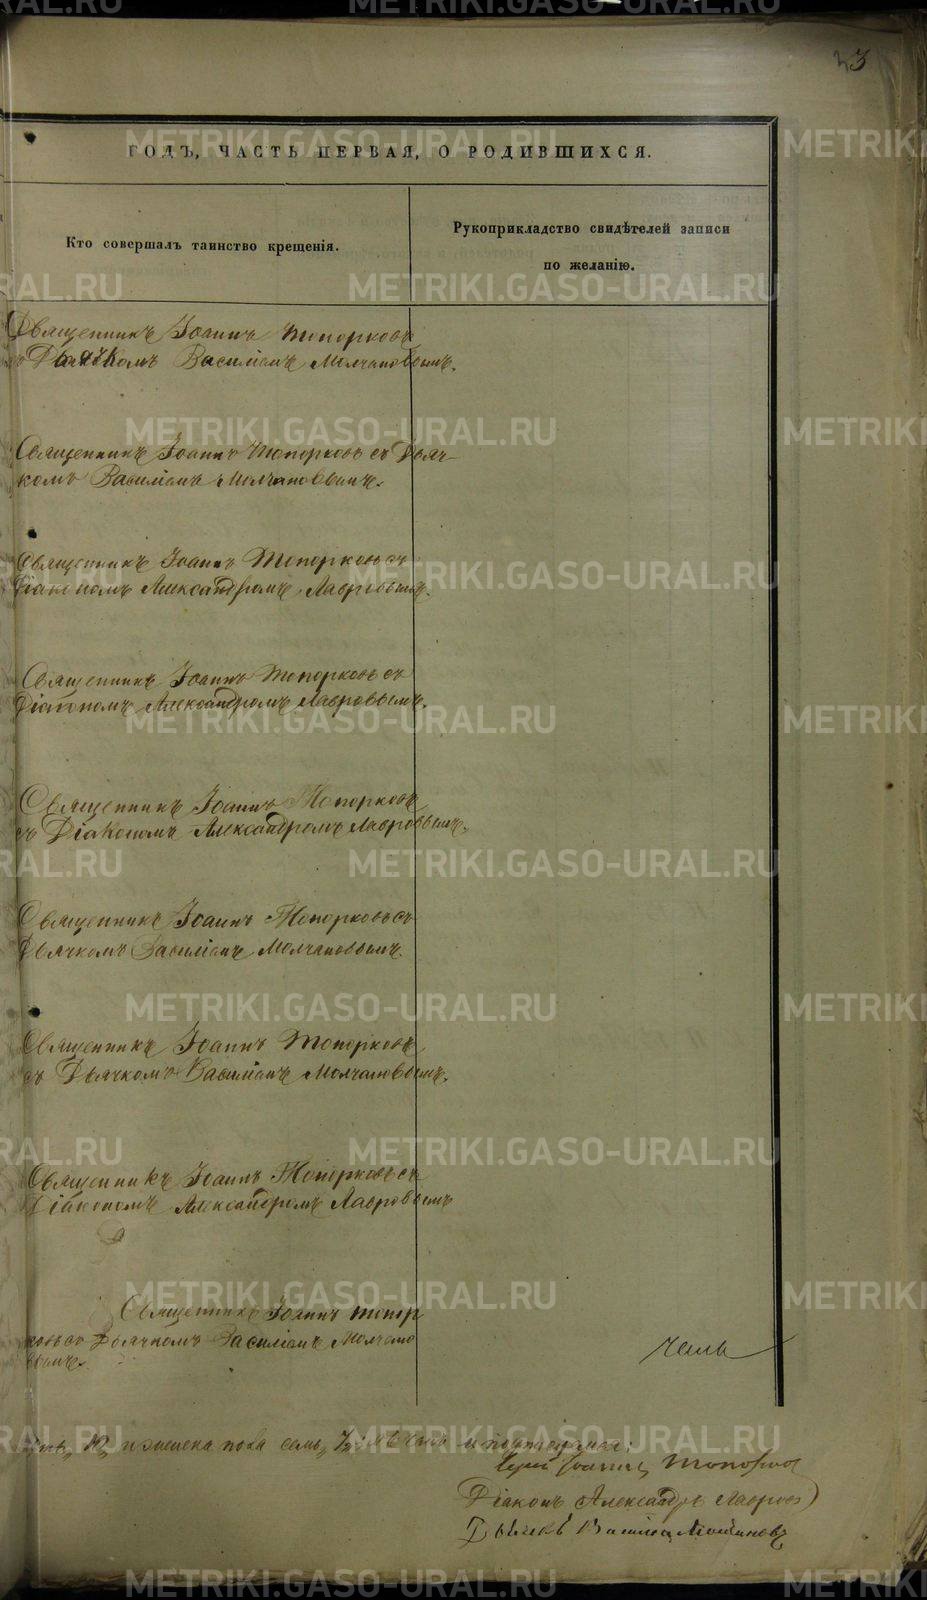 23
ГОДЪ, ЧАСТЬ ПЕРВАЯ, О РОДИВШИХСЯ.
Кто совершалъ таинство крещенія.
Рукоприкладство свидѣтелей записи
по желанію.
Священникъ Іоаннъ Топорковъ
съ Дьячкомъ Василіемъ Молчановымъ.
Священникъ Іоаннъ Топорковъ съ Дьяч-
комъ Василіемъ Молчановымъ.
Священникъ Іоаннъ Топорковъ съ
Діакономъ Александромъ Лавровымъ.
Священникъ Іоаннъ Топорковъ съ
Діакономъ Александромъ Лавровымъ.
Священникъ Іоаннъ Топорковъ
съ Діакономъ Александромъ Лавровымъ.
Священникъ Іоаннъ Топорковъ съ
Дьячкомъ Василіемъ Молчановымъ.
Священникъ Іоаннъ Топорковъ
съ Дьячкомъ Василіемъ Молчановымъ.
Священникъ Іоаннъ Топорковъ съ
Діакономъ Александромъ Лавровымъ
Священникъ Іоаннъ Топор
ковъ съ Дьячкомъ Василіемъ Молчано
вымъ.
Іоаннъ Топорков
Діаконъ Александръ Лавров
Дьячекъ Василій Молчановъ
METRIKI.GASO-URAL.RU